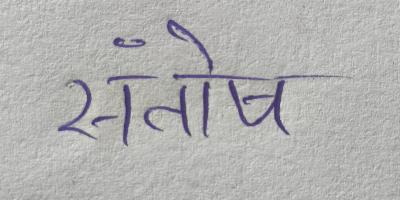 संतोष